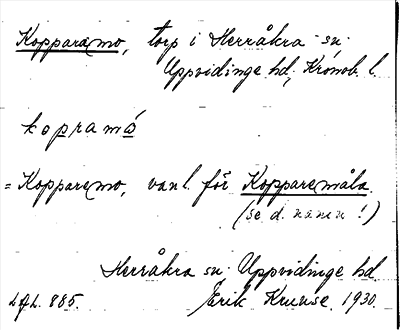 Kopparemo, torp i Herråkra sn.
Uppvidinge hd, Kronob. l.
kopramó
= Kopparemo, vanl. för Kopparemåla.
(se d. namn!)
Herråkra sn. Uppvidinge hd.
Erik Kruuse. 1930.
L.A.L. 885.